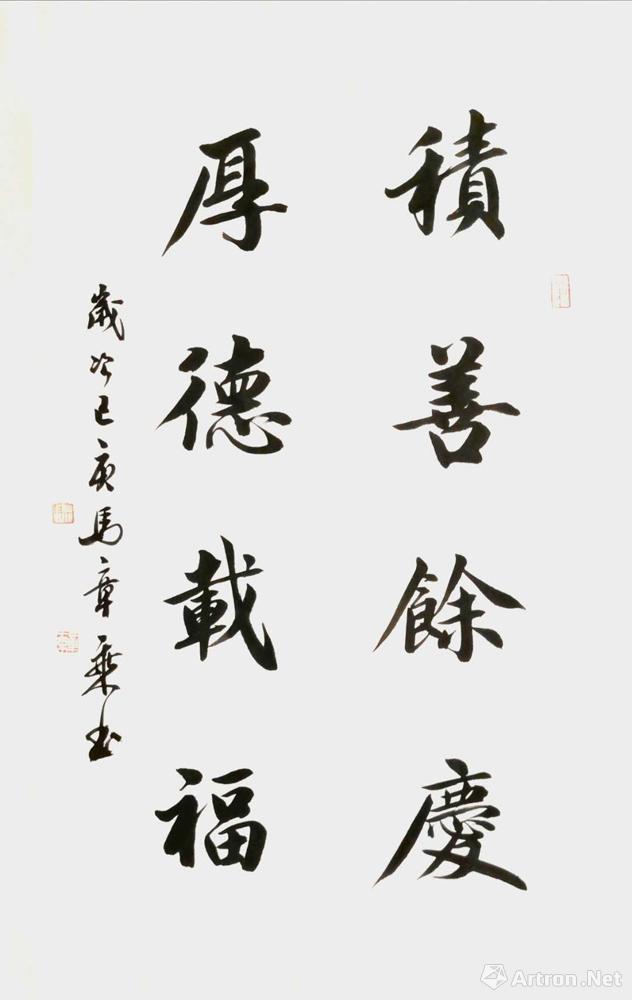 積善餘慶
厚德載福
歲次己亥馬章乘书
Artron.Net